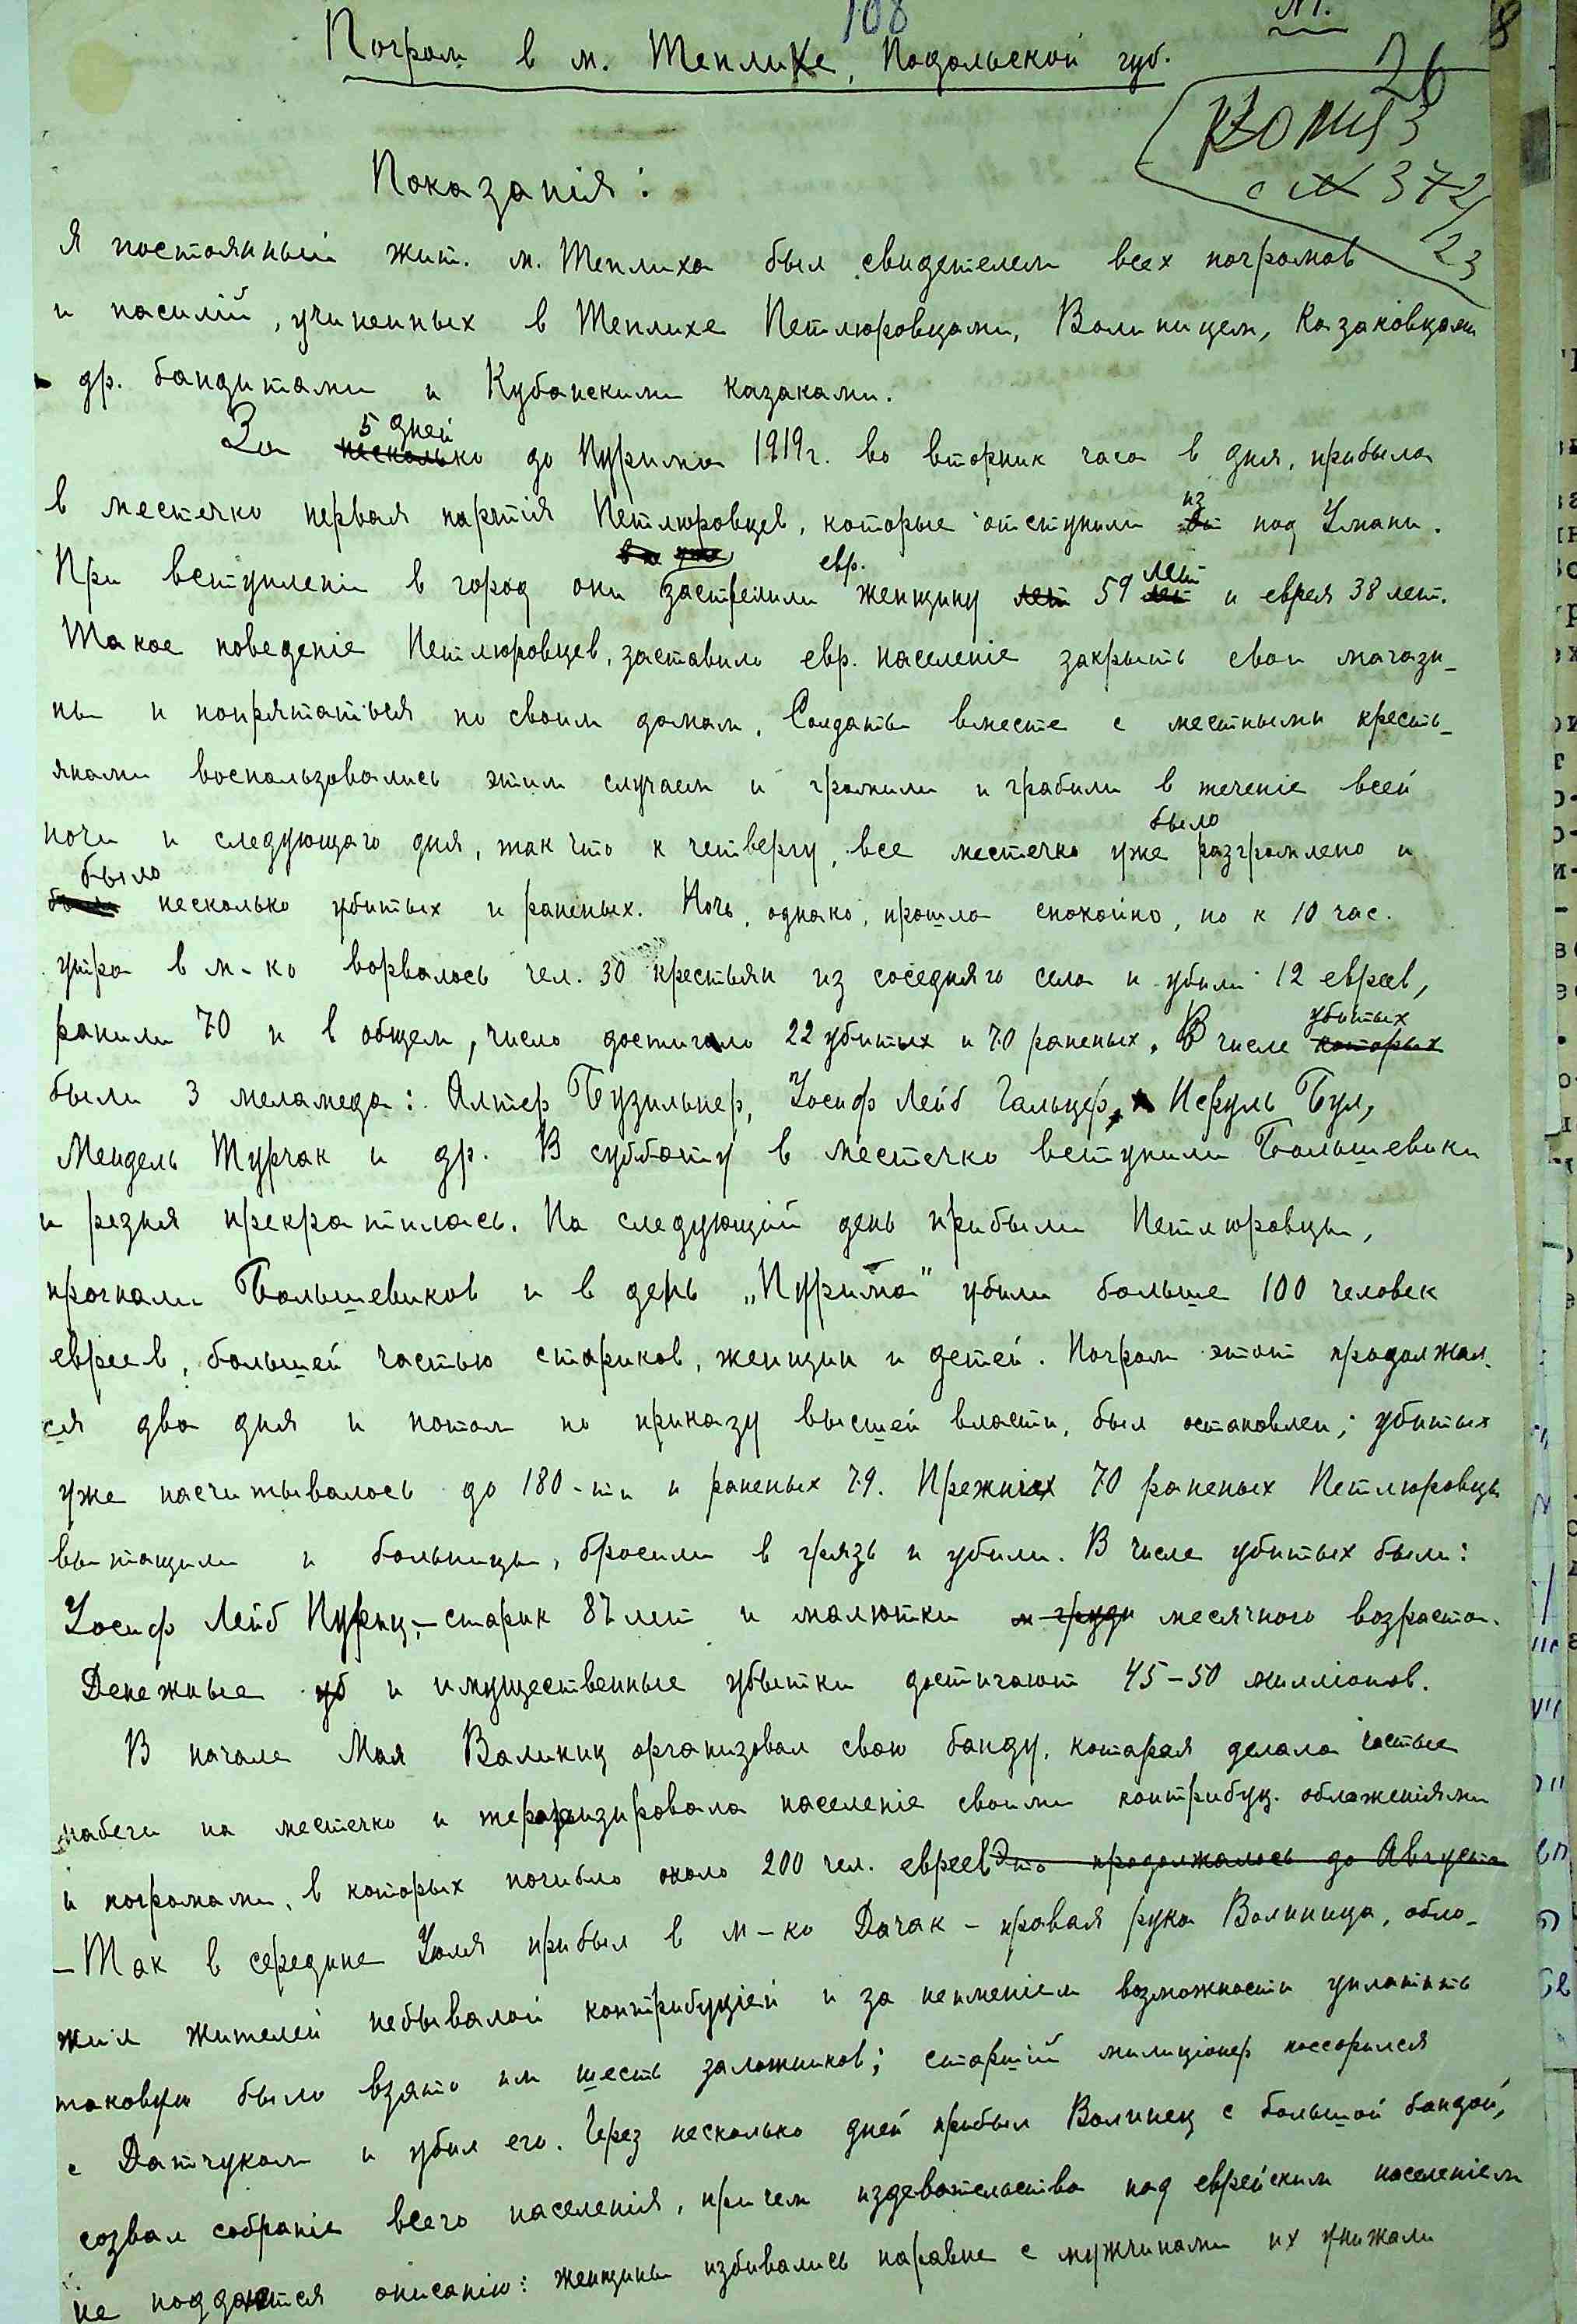 108
№1.
8
Погром в м. Теплихе, Подольской губ.
26
Копия 3
с № 372/23
Показанія:
Я постоянный жит. м. Теплиха был свидетелем всех погромов
и насилій, учиненных в Теплихе Петлюровцами, Волиницем, Казаковцами
др. бандитами и Кубанскими казаками.
За 5 дней до Пурима 1919г. во вторник часа в дня, прибыла
в местечко первая партія Петлюровцев, которые отступили из под Умани.
При вступленіи в город они застрелили евр. женщину 59 лет и еврея 38 лет.
Такое поведеніе Петлюровцев, заставило евр. населеніе закрыть свои магази-
ны и попрятаться по своим домам. Солдаты вместе с местными кресть-
янами воспользовались этим случаем и громили и грабили в теченіе всей
ночи и следующаго дня, так что к четвергу, все местечко уже было разгромлено и
было несколько убитых и раненых. Ночь, однако, прошла спокойно, но к 10 час.
утра в м-ко ворвалось чел. 30 крестьян из соседняго села и убили 12 евреев,
ранили 70 и в общем, число достигало 22 убитых и 70 раненых. В числе убитых
были 3 меламеда: Алтер Бузильнер, Иосиф Лейб Гальцер, Исруль Бул,
Мендель Турчак и др. В субботу в местечко вступили Большевики
и резня прекратилась. На следующій день прибыли Петлюровцы,
прогнали Большевиков и в день „Пурима" убили больше 100 человек
евреев, большей частью стариков, женщин и детей. Погром этот продолжал-
ся два дня и потом по приказу высшей власти, был остановлен; убитых
уже насчитывалось до 180-ти и раненых 79. Прежних 70 раненых Петлюровцы
вытащили и больницы, бросили в грязь и убили. В числе убитых были:
Иосиф Лейб Пуриц,-старик 87 лет и малютки месячного возраста.
Денежные и имущественные убытки достигают 45-50 милліонов.
В начале Мая Волиниц организовал свою банду, которая делала частые
набеги на местечко и терроризировала населеніе своими контрибуц. обложеніями
и погромами, в которых погибло около 200 чел. евреев Это продолжалось до Августа
-Так в середине Июля прибыл в м-ко Дачак - правая рука Волиница, обло-
жил жителей небывалой контрибуціей и за неименіем возможности уплатить
таковую было взято им шесть заложников; старшій милиціонер поссорился
с Датчуком и убил его. Через несколько дней прибыл Волинец с большой бандой,
созвал собраніе всего населенія, при чем издевательства над еврейским населеніем
не поддаются описанію: женщины избивались наравне с мужчинами их унижали